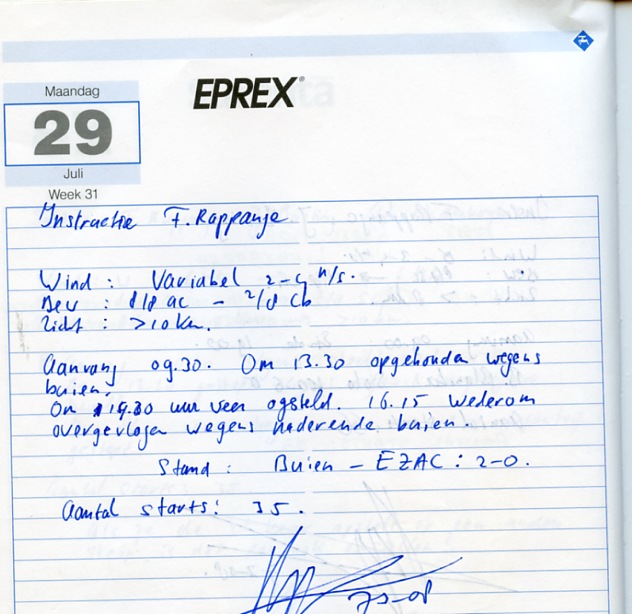 EPREX®
Maandag
29
Juli
Week 31
Instructie F. Rappange
Wind : Variabel 2-4 m/s.
Bew : 1/8 ac - 2/8 Cb
Zicht : >10 km.
Aanvang 09.30. Om 13.30 opgehouden wegens
buien.
Om 14.30 uur weer opgesteld. 16.15 wederom
overgevlogen wegens naderende buien.
Stand : Buien - EZAC : 2-0.
Aantal starts: 35.